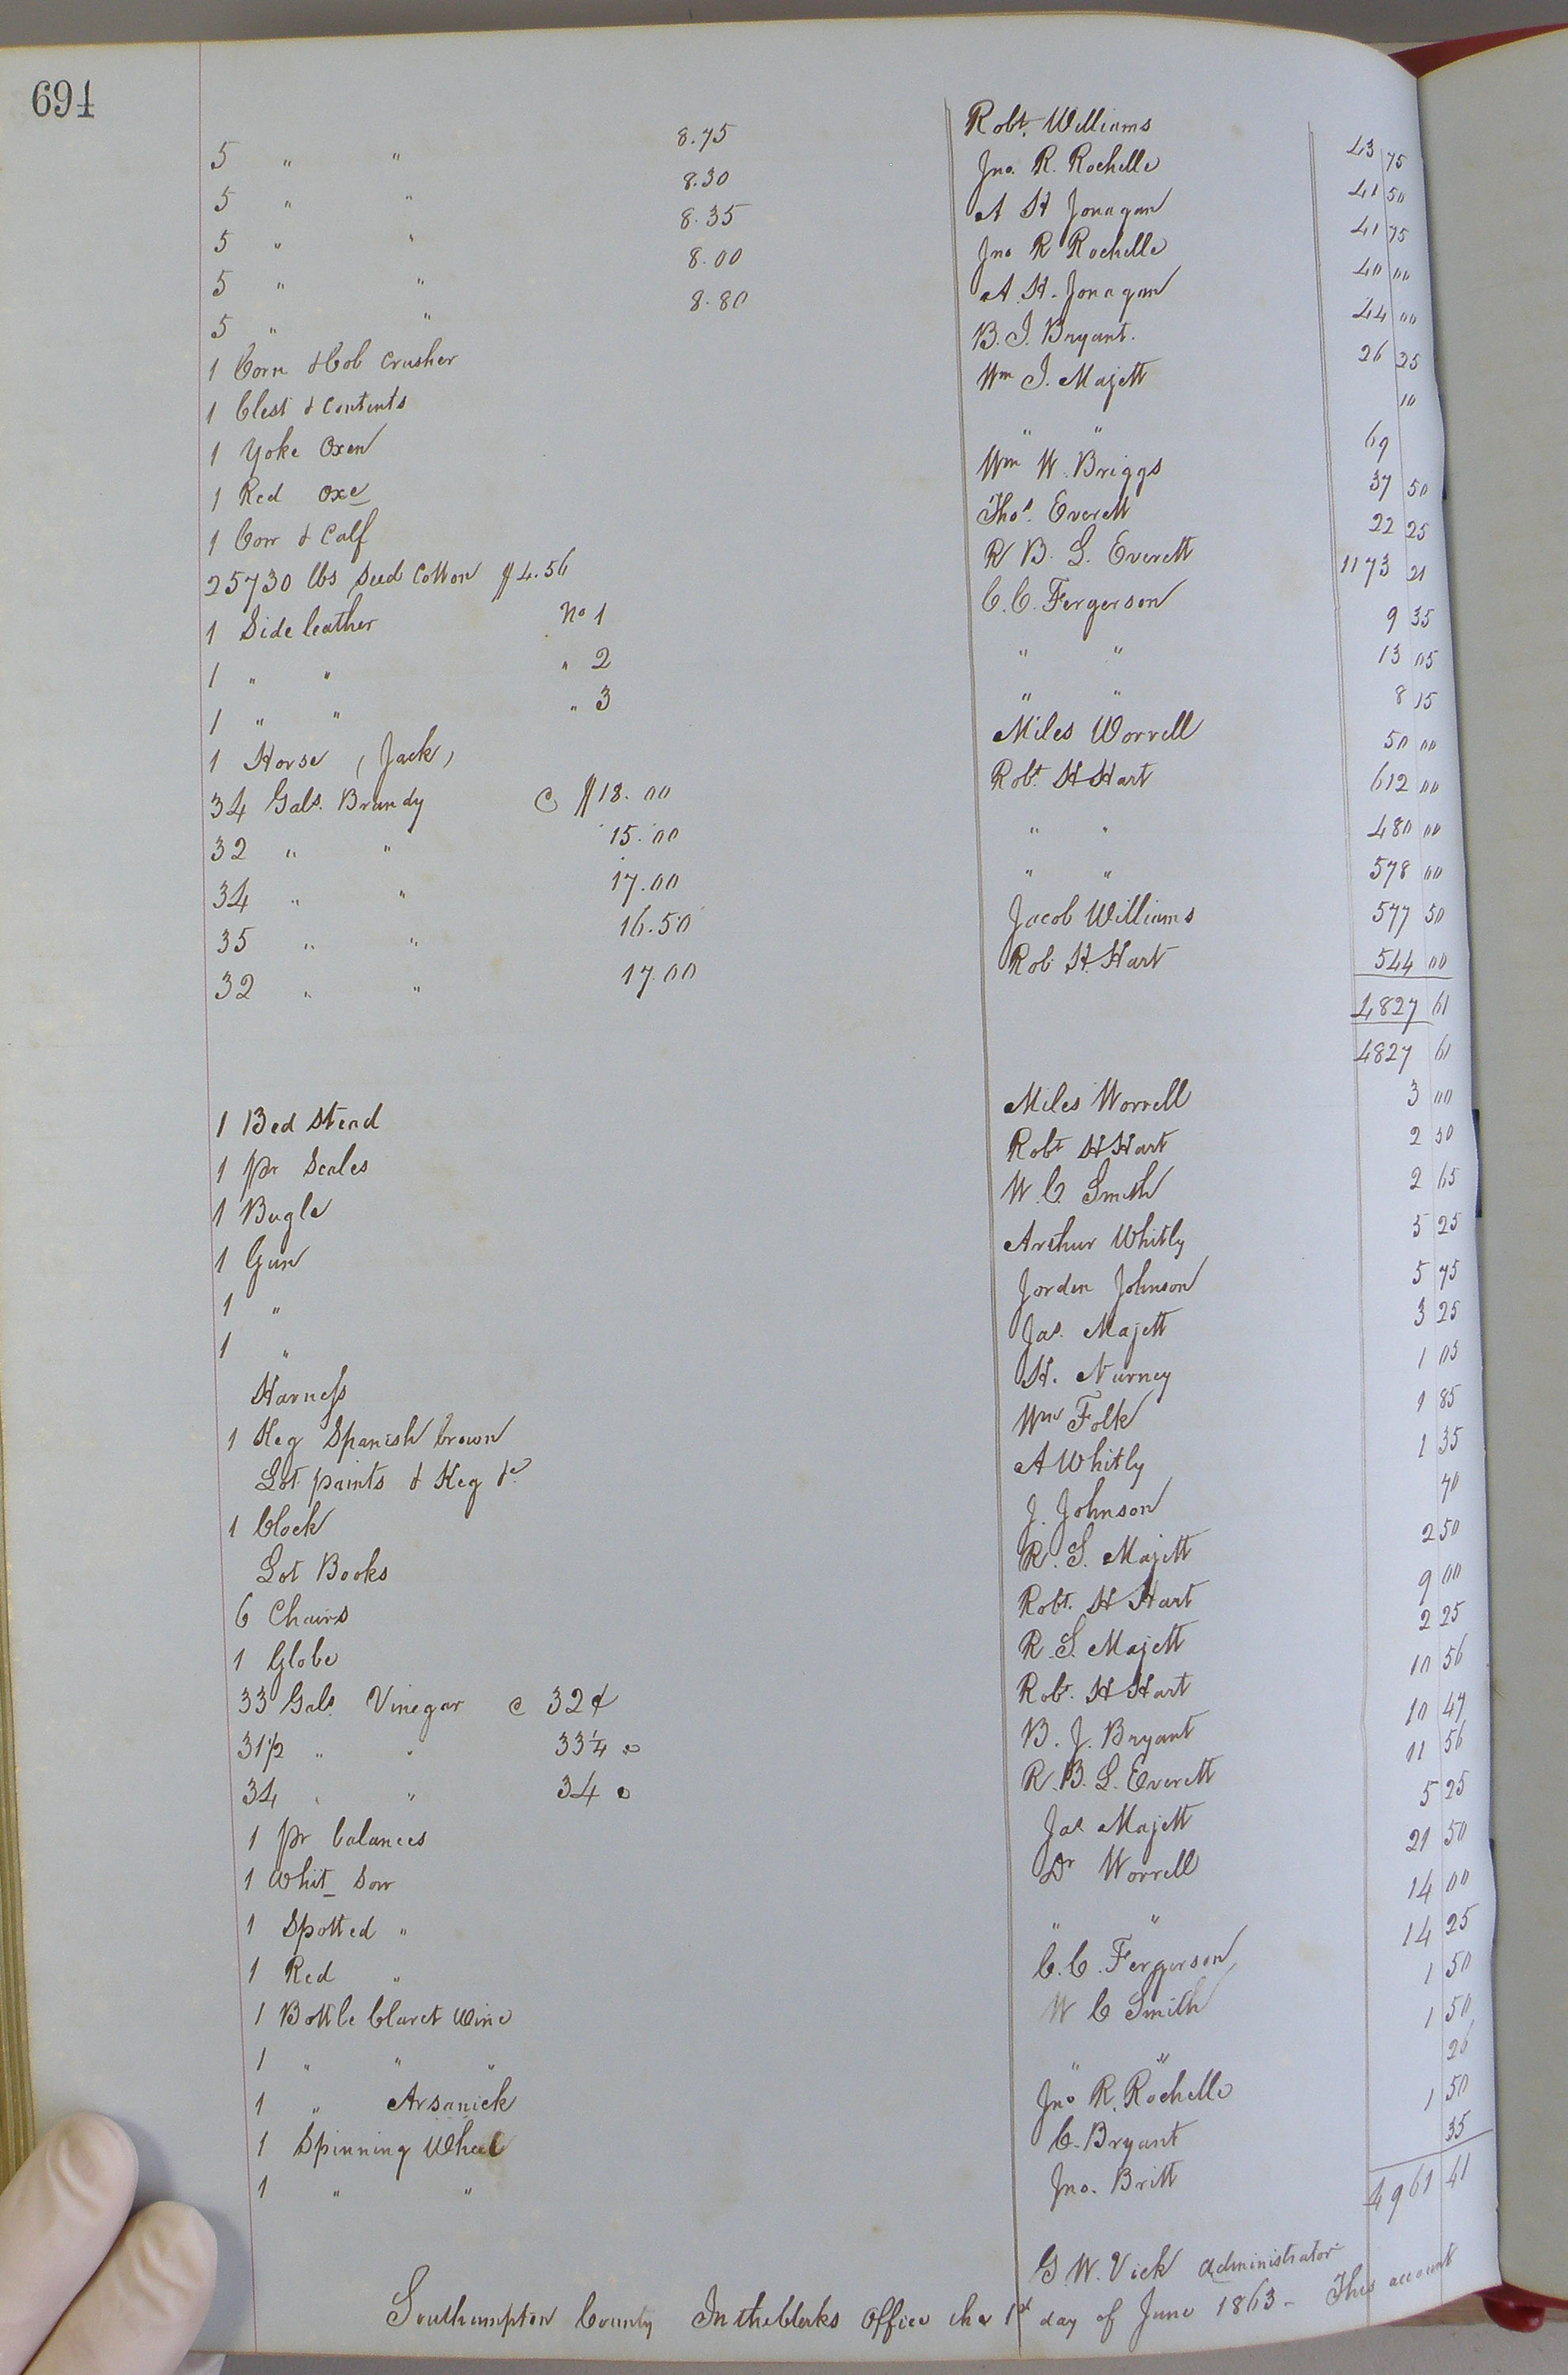 694
5 " " 8.75 Robt. Williams 43 75
5 " " 8.30 Jno. R. Rochelle 41 50
5 " " 8.35 A H Jonagan 41 75
5 " " 8.00 Jno R Rochelle 40 00
5 " " 8.80 A. H. Jonagan 44 00
1 Corn & Cob Crusher B. J. Bryant. 26 25
1 Chest & Contents Wm J. Majett 10
1 Yoke Oxen " " 69
1 Red Oxe Wm W. Briggs 37 50
1 Cow & Calf Thos. Everett 22 25
25730 lbs Seed Cotton $4.56 R B. L. Everett 1173 21
1 Side leather No 1 C. C. Fergerson 9 35
1 " " " 2 " " 13 05
1 " " " 3 " " 8 15
1 Horse (Jack) Miles Worrell 50 00
34 Gals. Brandy @ $18.00 Robt H Hart 612 00
32 " " 15.00 " " 480 00
34 " " 17.00 " " 578 00
35 " " 16.50 Jacob Williams 577 50
32 " " 17.00 Rob H. Hart 544 00
4827 61
4827 61
1 Bed Stead Miles Worrell 3 00
1 pr Scales Robt H Hart 2 50
1 Bugle W. C. Smith 2 65
1 Gun Arthur Whitly 5 25
1 " Jorden Johnson 5 75
1 " Jas. Majett 3 25
Harness H. Nurney 1 05
1 Keg Spanish brown Wm Folk 1 85
Lot paints & Keg &c A Whitly 1 35
1 Clock J. Johnson 70
Lot Books R. S. Majett 2 50
6 Chairs Robt. H Hart 9 00
1 Globe R. S. Majett 2 25
33 Gals. Vinegar @ 32¢ Robt. H Hart 10 56
31½ " " 33¼ B. J. Bryant 10 47
34 " " 34 R. B. L. Everett 11 56
1 pr balances Jas Majett 5 25
1 Whit Sow Dr Worrell 21 50
1 Spotted " " " 14 00
1 Red " C. C. Fergerson 14 25
1 Bottle Claret Wine W C Smith 1 50
1 " " " " " 1 50
1 " Arsanick Jno R. Rochelle 26
1 Spinning Wheel C. Bryant 1 50
1 " " Jno. Britt 35
4961 41
G. W. Vick Administrator
Southampton County In the Clerks Office the 1st day of June 1863 - This account